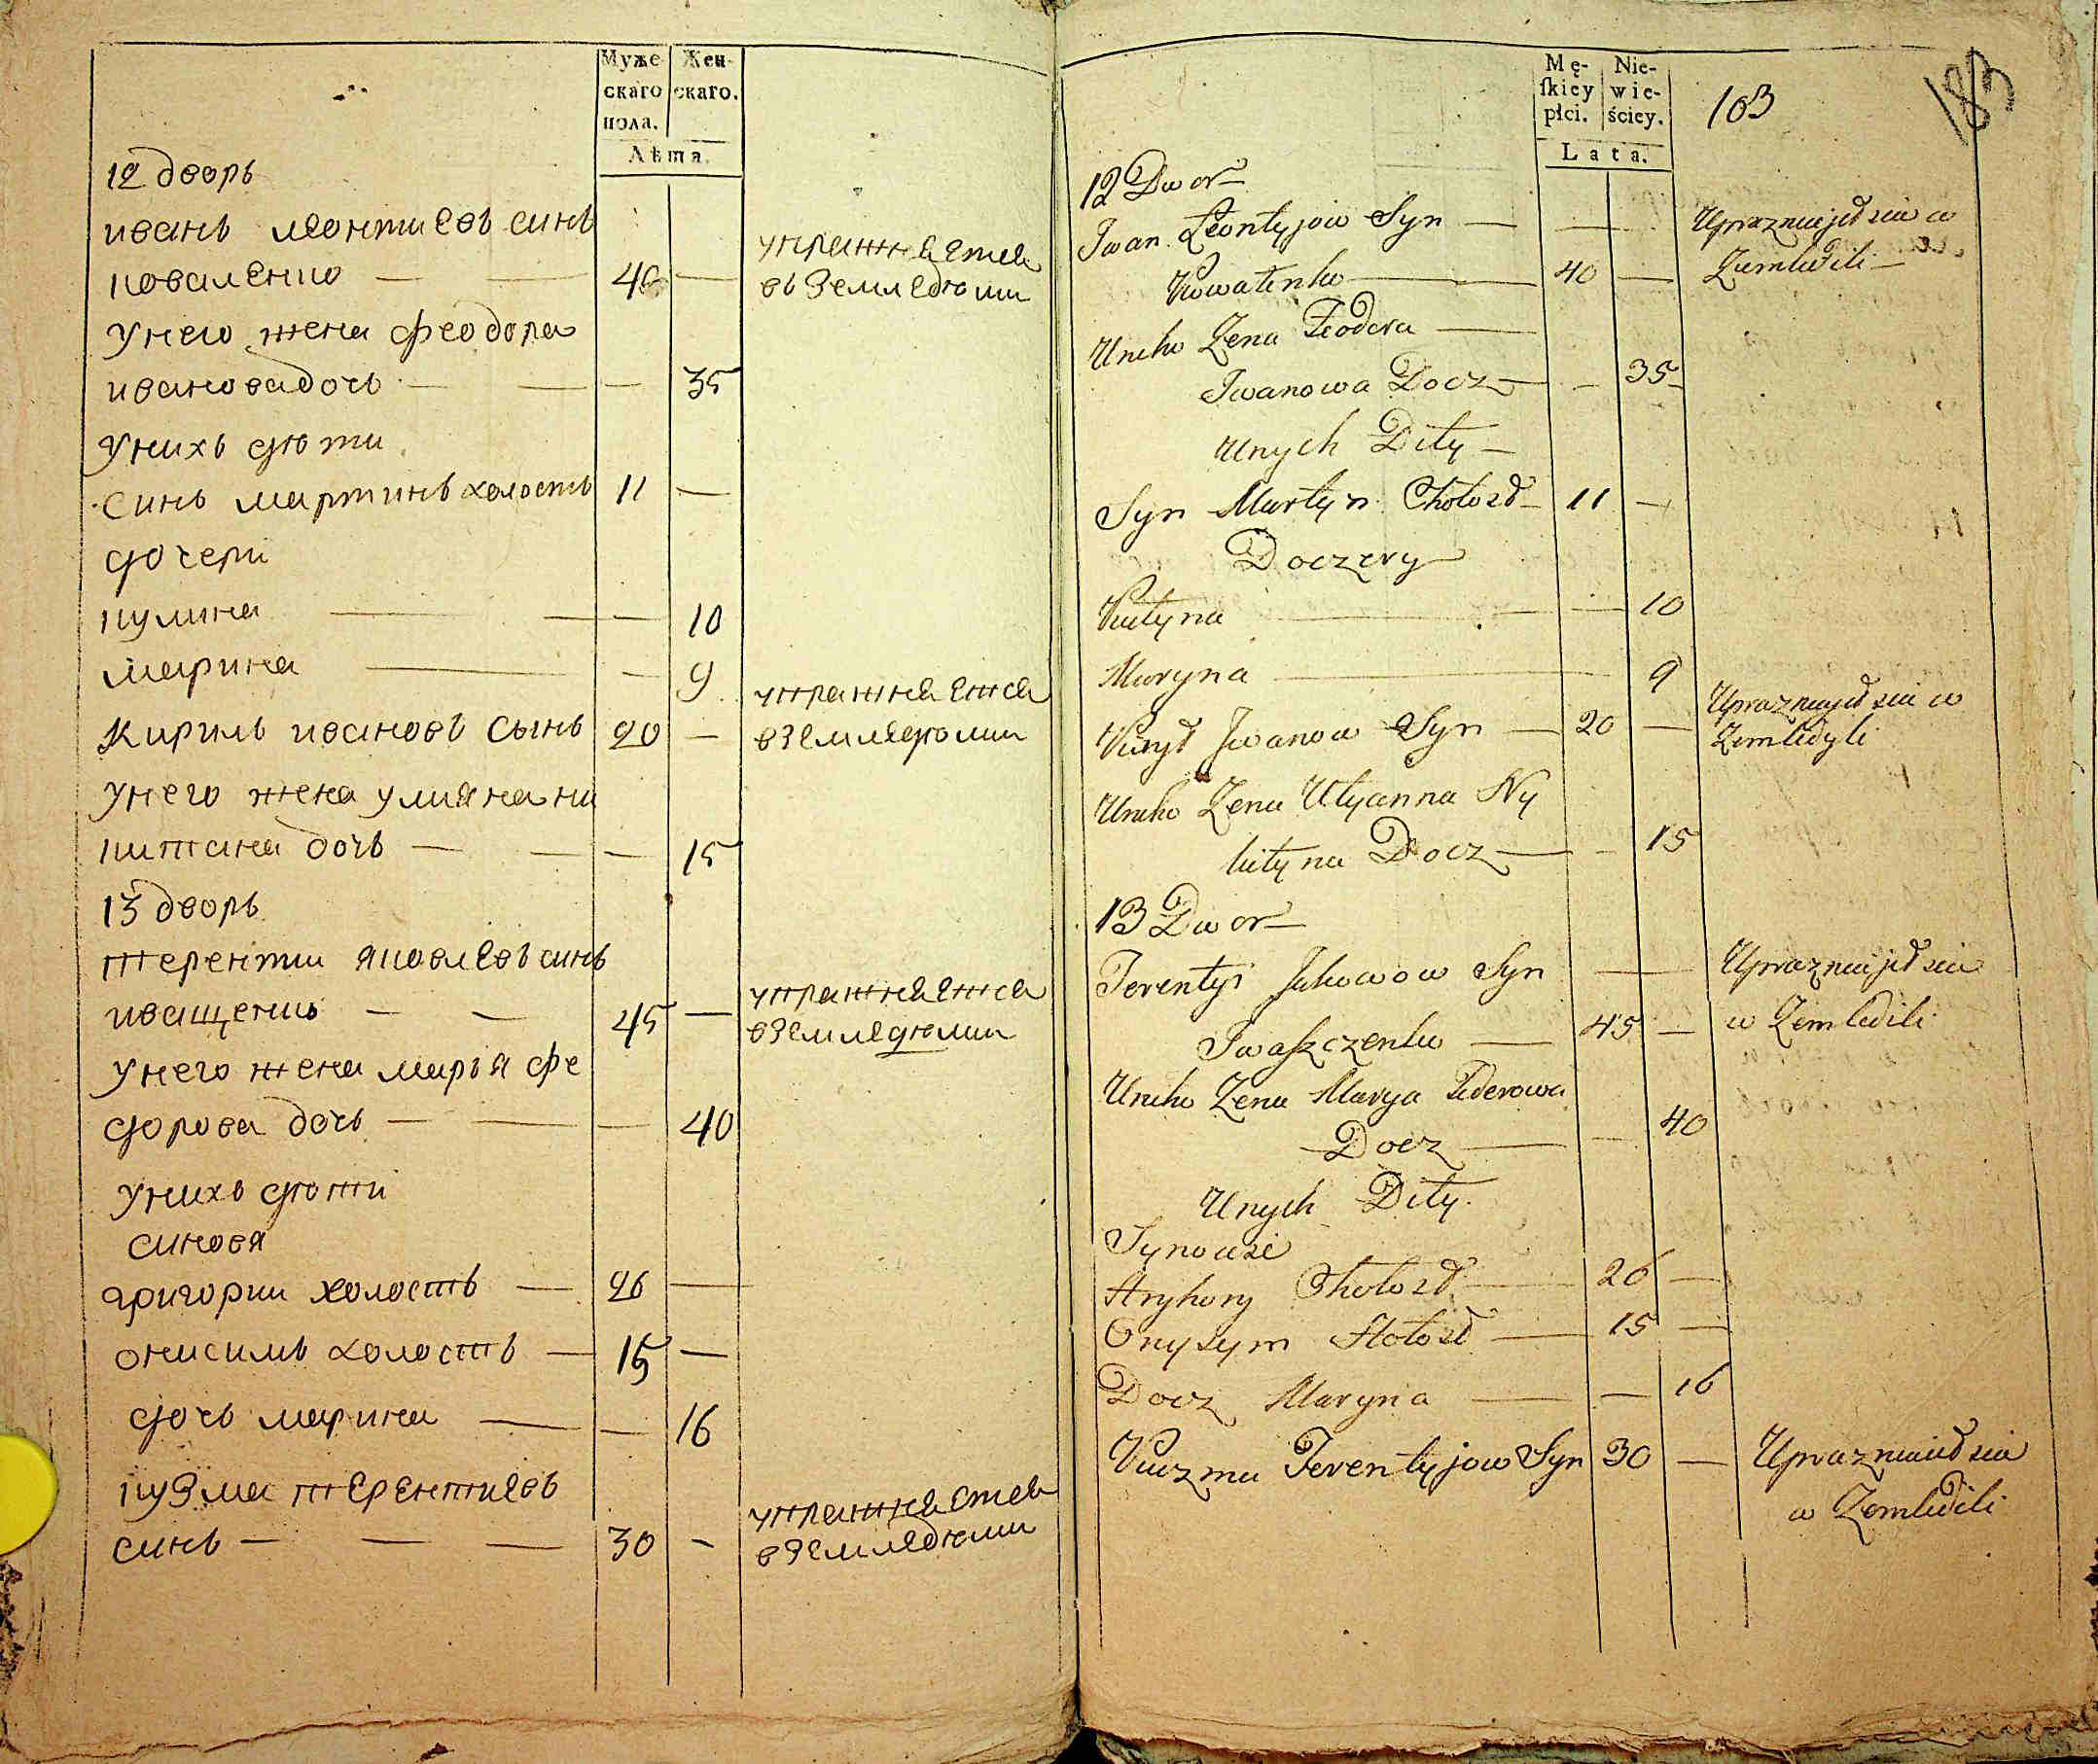 Муже-
скаго
пола.
Жен-
скаго.
Лѣта.
12 дворъ
иванъ леонтиевъ синъ
коваленко — —
40 —
упражняется
въ Земледѣлии
Унего жена феодора
ивановадочь — — —
35
Унихъ дѣти
синъ мартинъ холостъ 11 —
дочери
кулина — — — 10
марина — — 9
Кирилъ ивановъ Сынъ 20 —
упражняется
вЗемледѣлии
Унего жена улияна ни
китина дочь — — — 15
13 дворъ
терентии яковлевъ синъ
иващенко — — 45 —
упражняется
вЗемледѣлии
Унего жена марья фе
дорова дочь — — — 40
Унихъ дѣти
синовя
григории холостъ — 26 —
онисимъ холостъ — 15 —
дочь марина — — 16
куЗма терентиевъ
синъ — — — 30 -
упражняется
вЗемледѣлии
Mę-
ſkiey
płci.
Nie-
wie-
ściey.
Lata.
103
183
12 Dwor
Iwan Leontyjow Syn — —
Kowalenko — 40 —
Uprazniajeł sia w
Zemledili
Uneho Zena Feodora —
Iwanowa Docz — - 35
Unych Dity —
Syn Martyn Chołosł 11 —
Doczery
Kulyna — — 10
Maryna — 9
Kirył Iwanow Syn — 20 —
Uprazniajeł sia w
Zemledyli
Uneho Zena Ulyanna Ny
kityna Docz — - 15
13 Dwor
Terentyi Jakowow Syn —
Iwaſzczenko — 45 —
Uprazniajeł sia
w Zemledili
Uneho Zena Marya Federowa
Docz — — 40
Unych Dity.
Synowie
Hryhory Chołosł — 26 —
Onysym Hołosł — 15 —
Docz Maryna — — 16
Kuzma Terentyjow Syn 30 —
Uprazniaieł sia
w Zemledili